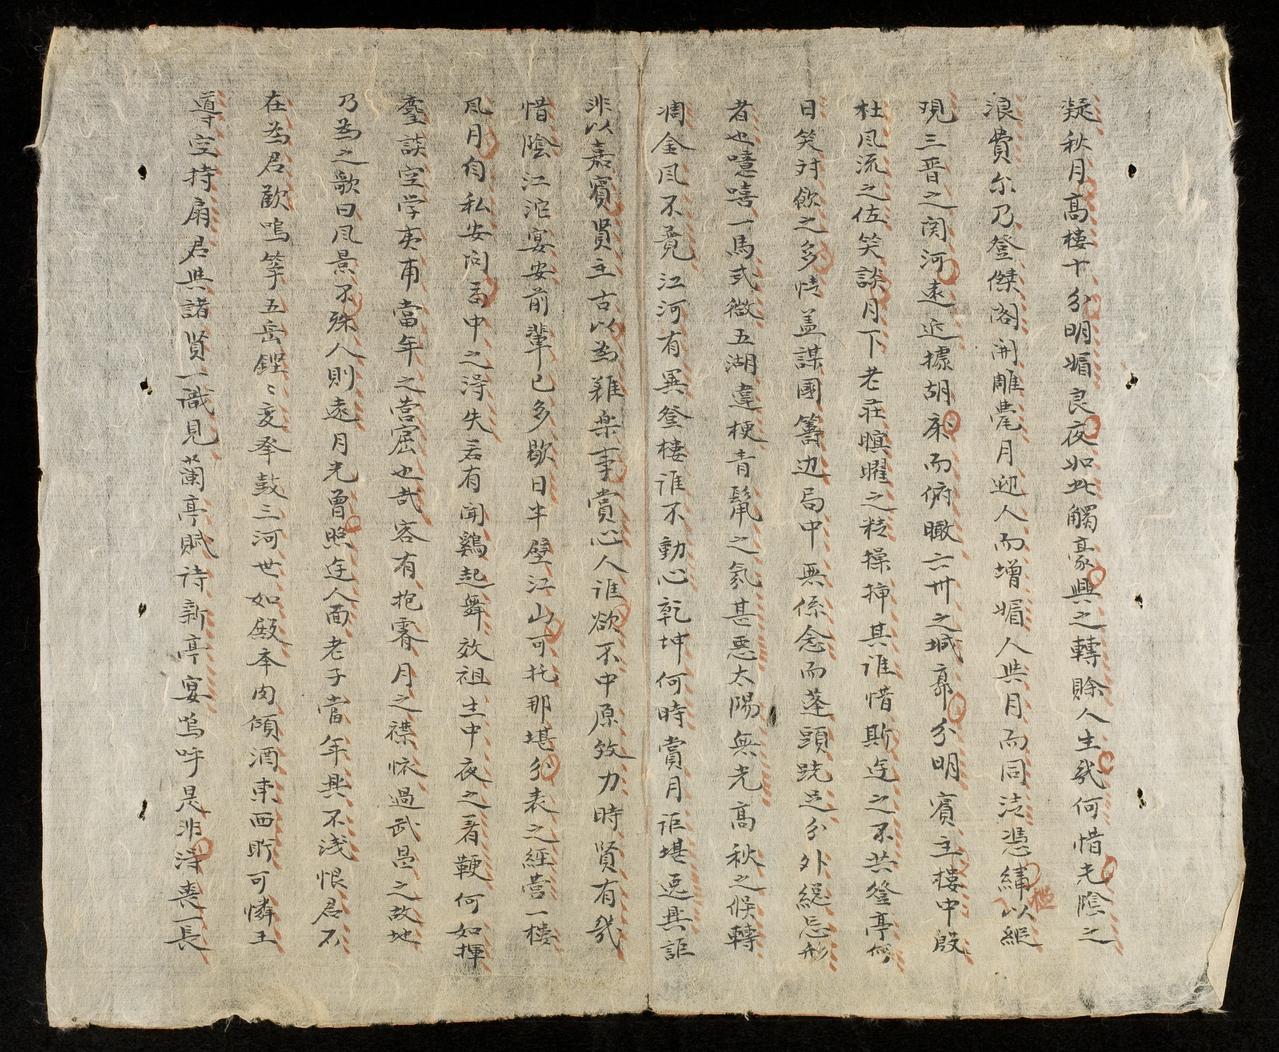 疑秋月高楼十分明媚良夜如此觸豪興之轉賒人生幾何惜光陰之
浪費尔乃登傑閣開雕甍月迎人而增媚人與月而同清憑繡以縱
檻
观三晋之関河遠近據胡床而俯瞰六州之城郭分明賓主樓中殷
杜风流之佐笑談月下老荘瞋曜之核操揮其谁惜斯廷之不共登亭何
日笑对飲之多情盖謀國籌边局中無係念而蓬頭跣足分外總忘形
者也噫嘻一馬式微五湖違梗青髦之氛甚悪太陽無光高秋之候轉
凋金风不竟江河有異登楼谁不動心乾坤何時賞月詎堪逗興詎
非以嘉賓贤主古以為難楽事賞心人谁欲不中原效力時贤有幾
惜陰江沱宴安前輩已多歇日半壁江山可托那堪分表之經营一楼
风月自私安问局中之得失若有闻鷄起舞效祖士中夜之着鞭何如揮
麈談空学夷甫當年之营窟也哉客有抱霽月之襟怀過武昌之故地
乃為之歌曰风景不殊人則遠月光曾照迄人面老子當年興不浅恨君不
在為君歡鳴筝五岳鏗〻交奉鼓三河世如殿本肉傾酒東西貯可憐王
導空持扇君與諸贤一識見蘭亭賦诗新亭宴嗚呼是非得丧一長